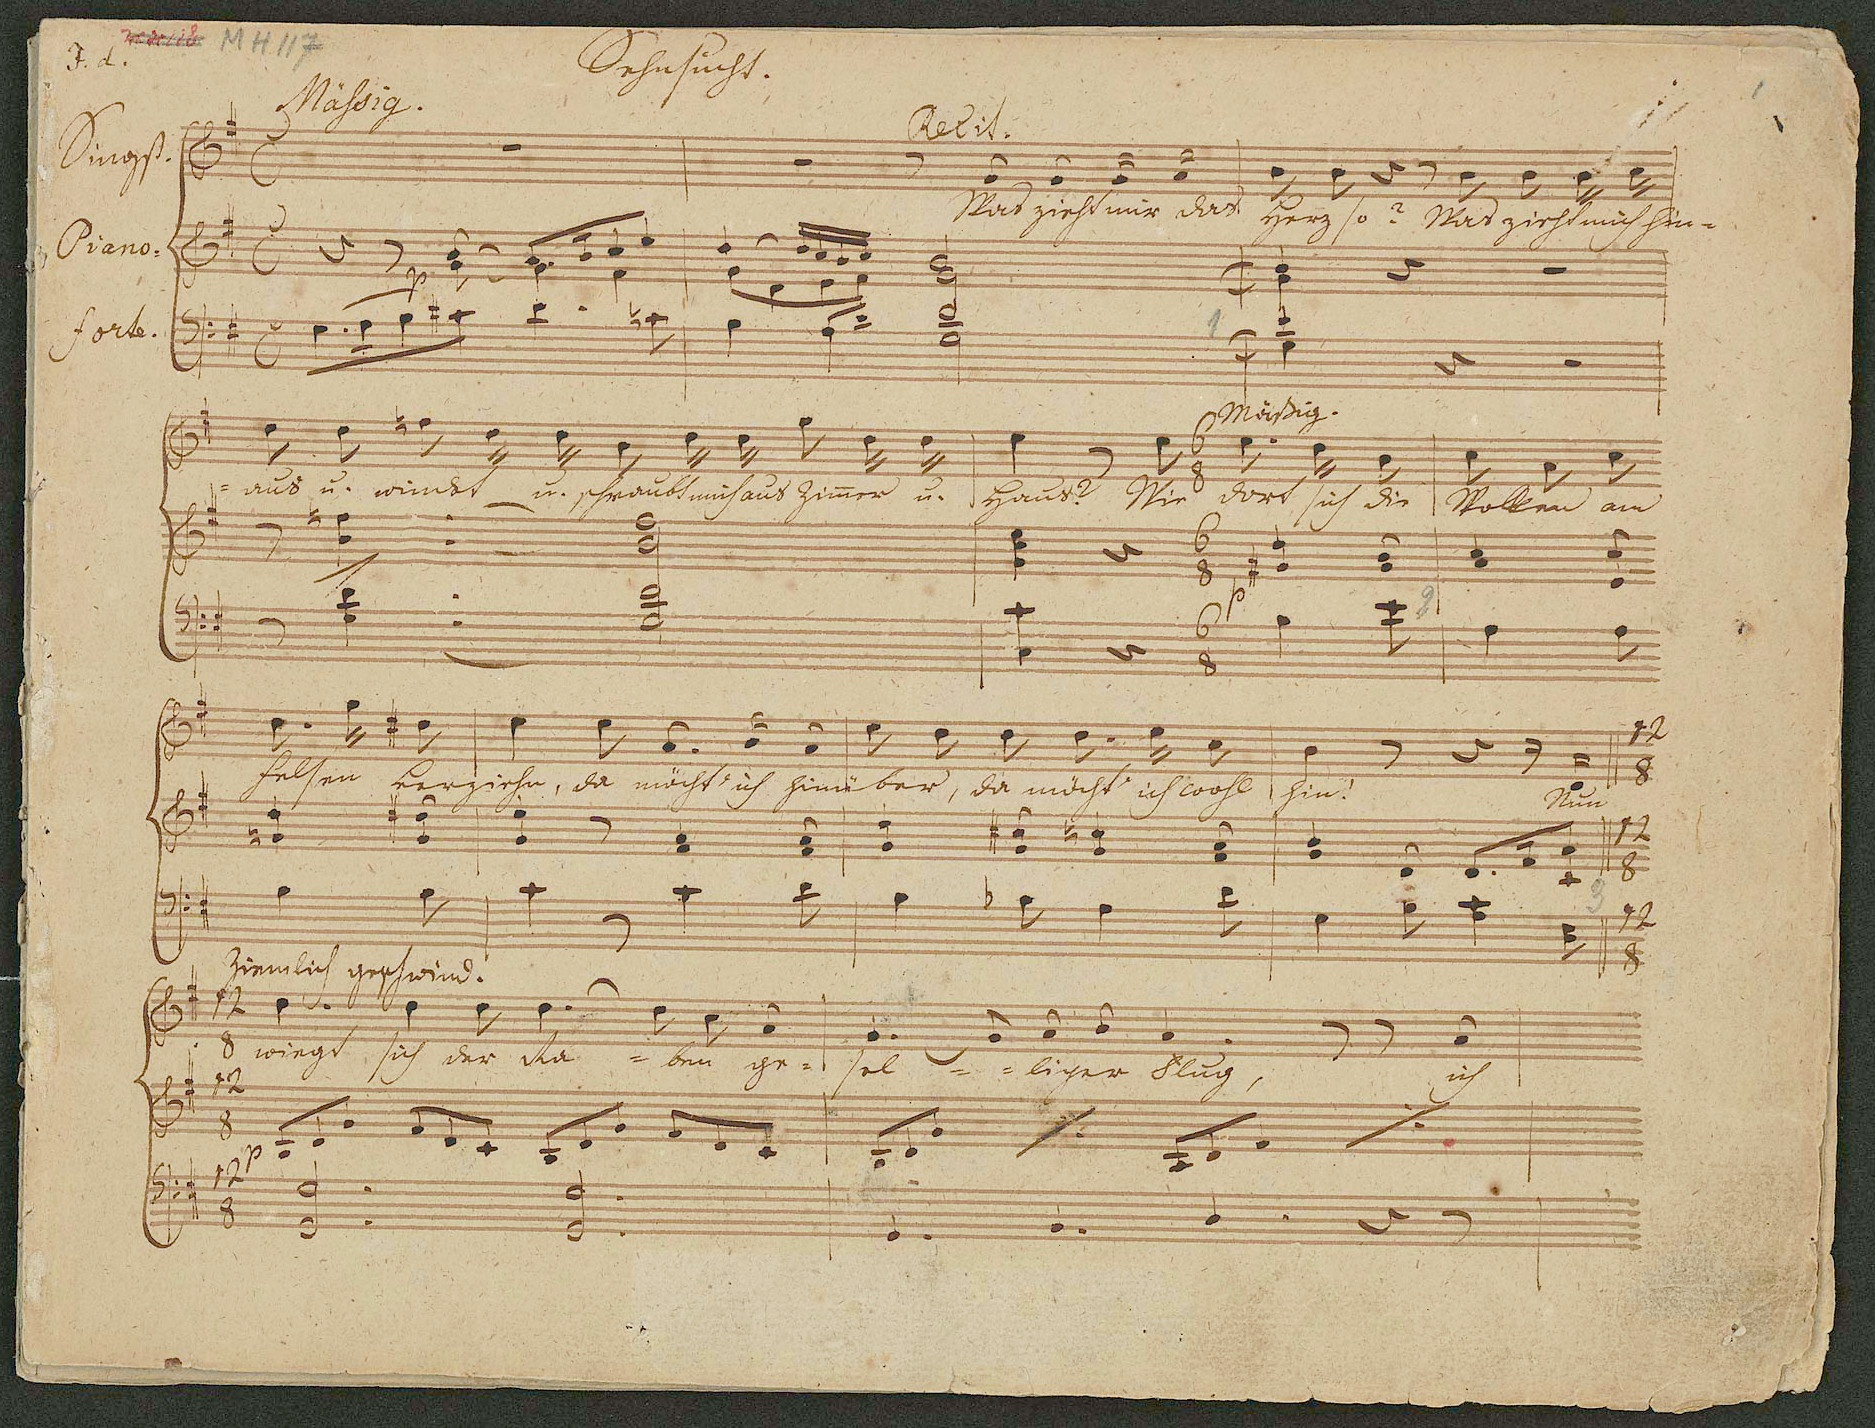 MH 117
J. d.
Sehnsucht.
Mässig.
Recit.
Singst.
Was zieht mir das Herz so? Was zieht mich hin=
Piano=
p
forte.
1
Mässig.
=aus u. windet u. schraubt mich aus Zimer u. Haus? Wie dort sich die Wolken am
6 8
6 8
p
2
6 8
12 8
Felsen herziehn, da möcht' ich hinüber, da möcht' ich wohl hin! Nun
12 8
3
12 8
Ziemlich geschwind.
12 8
wiegt sich der Ra=ben ge=sel==liger Flug, ich
12 8
p
12 8